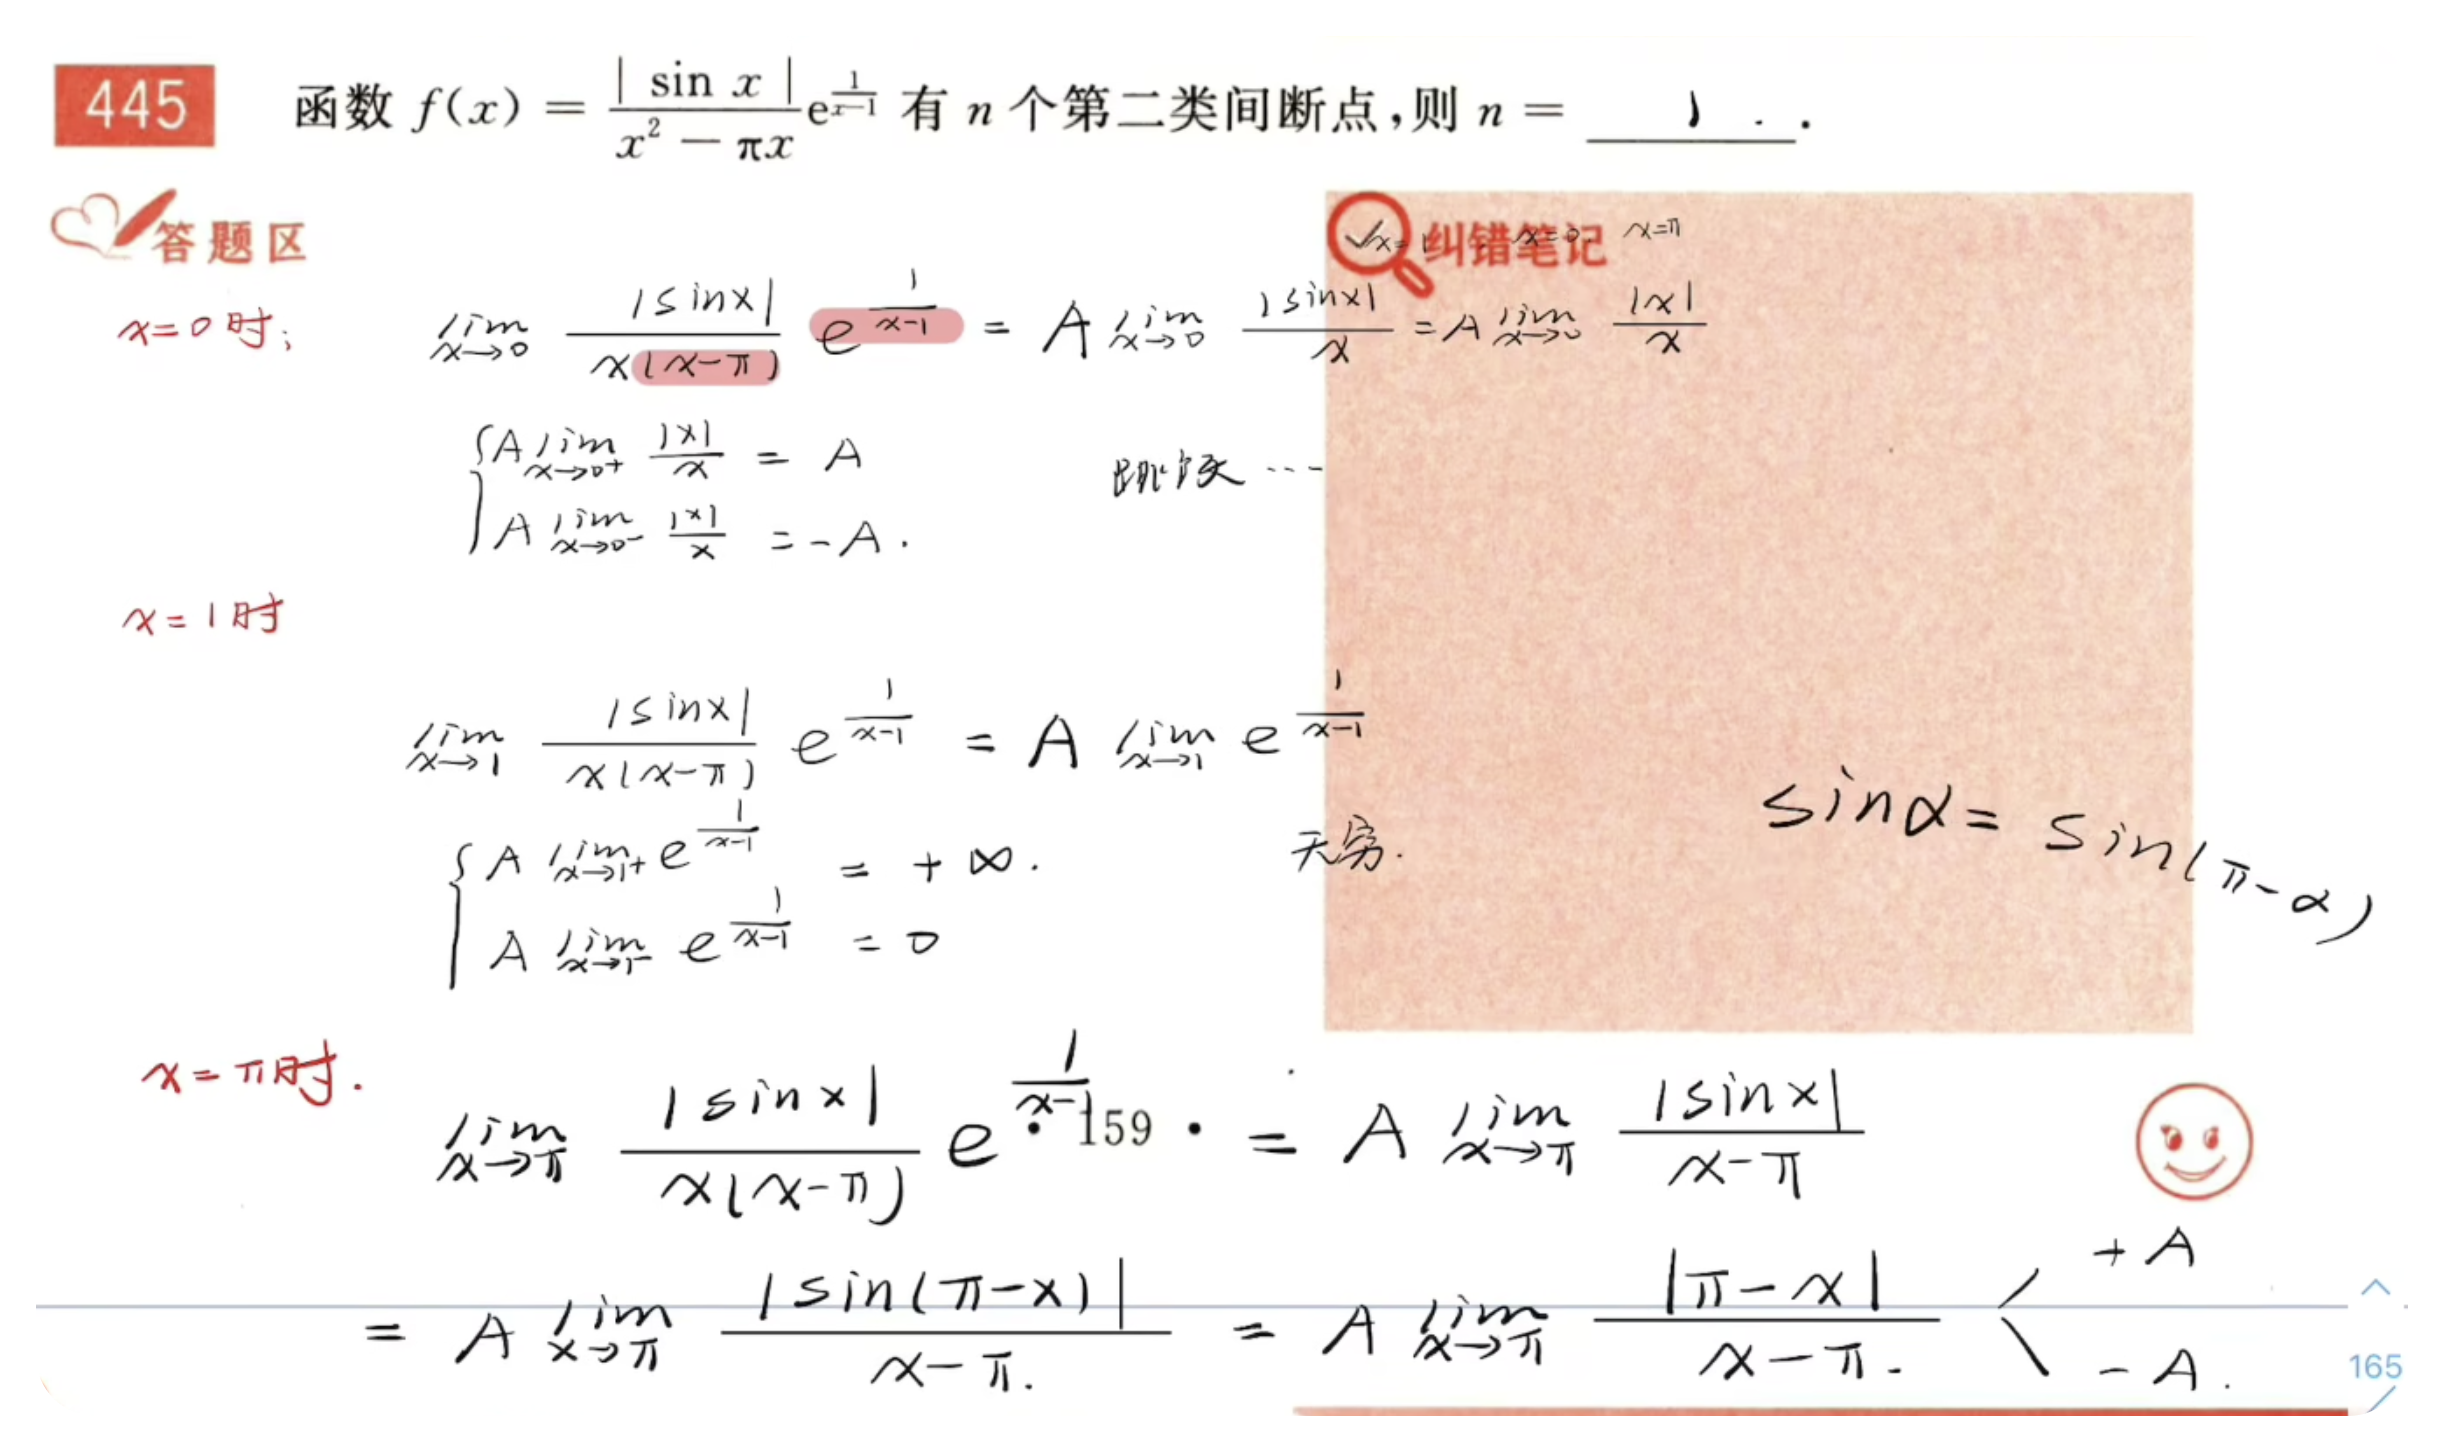 445 函数 f(x) = |sin x| / (x² − πx) e^(1/(x−1)) 有 n 个第二类间断点,则 n = 1 .
答题区
纠错笔记 x=0 x=π
x=0时; lim x→0 |sinx| / x(x-π) e^(1/(x-1)) = A lim x→0 |sinx| / x = A lim x→0 |x| / x
{ A lim x→0+ |x| / x = A
跳跃 ...
A lim x→0- |x| / x = -A.
x=1时
lim x→1 |sinx| / x(x-π) e^(1/(x-1)) = A lim x→1 e^(1/(x-1))
{ A lim x→1+ e^(1/(x-1)) = +∞.
无穷.
A lim x→1- e^(1/(x-1)) = 0
sinα = sin(π-α)
x=π时.
lim x→π |sinx| / x(x-π) e^(1/(x-1)) = A lim x→π |sinx| / x-π
• 159 •
= A lim x→π |sin(π-x)| / x-π. = A lim x→π |π-x| / x-π. < +A
-A.
165